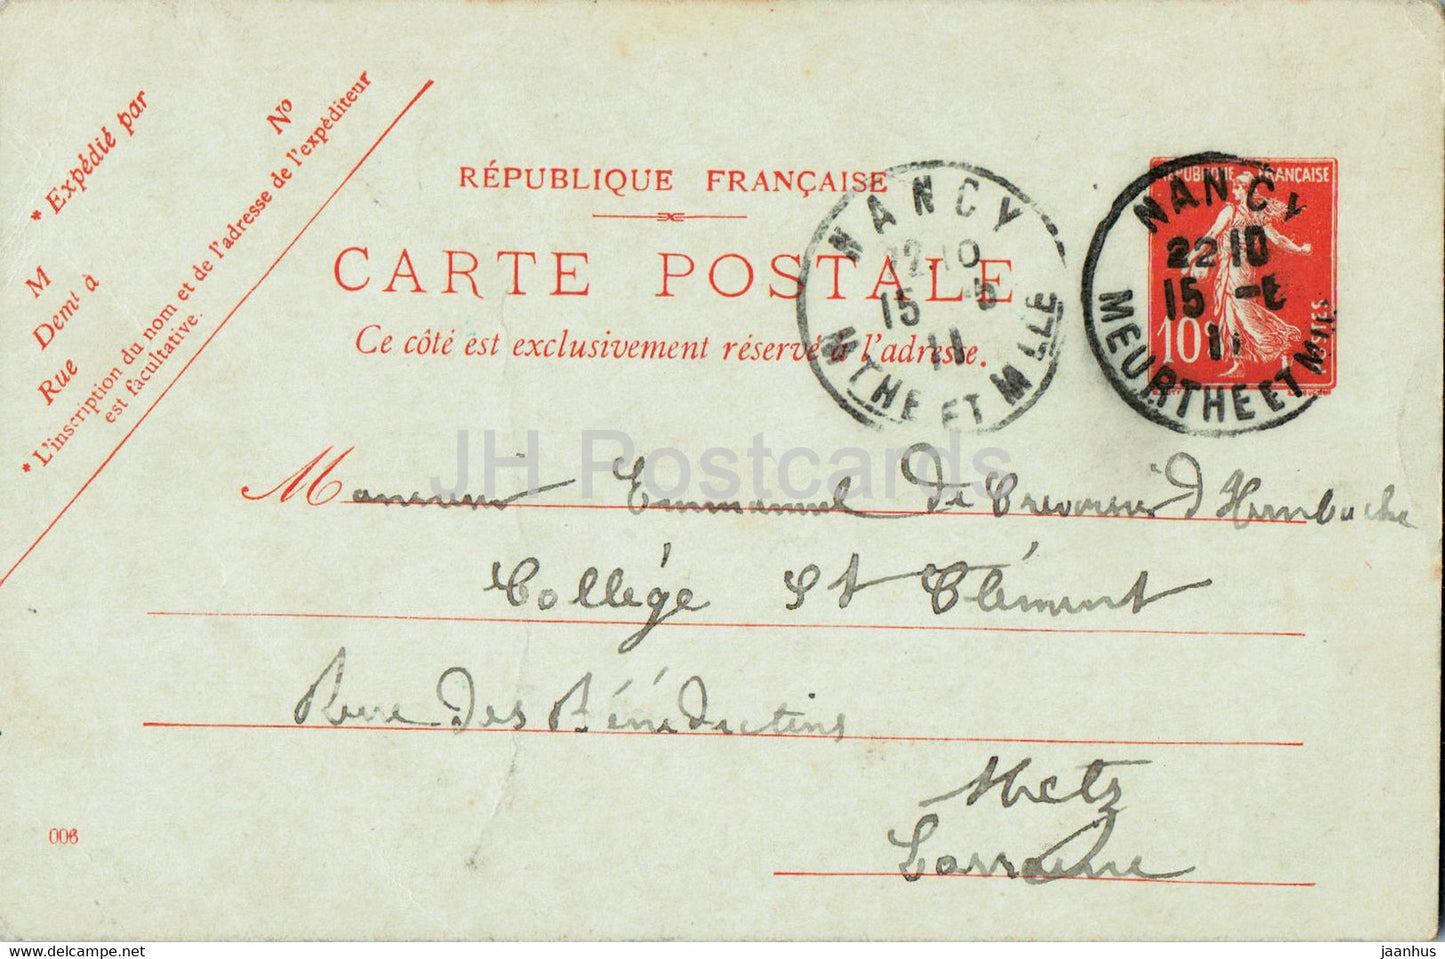 * Expédié par
M
Demt à
Rue
No
* L'inscription du nom et de l'adresse de l'expéditeur
est facultative.
RÉPUBLIQUE FRANÇAISE
CARTE POSTALE
Ce côté est exclusivement réservé à l'adresse.
NANCY
22 10
15 -5
11
MTHE ET MLLE
RÉPUBLIQUE FRANÇAISE
10c
POSTES
NANCY
22 10
15
11
MEURTHE ET M
JH Postcards
Monsieur Emmanuel d'Hambache
Collège St Clément
Rue des Bénédictins
Metz
Lorraine
006
jaanhus
jaanhus.com